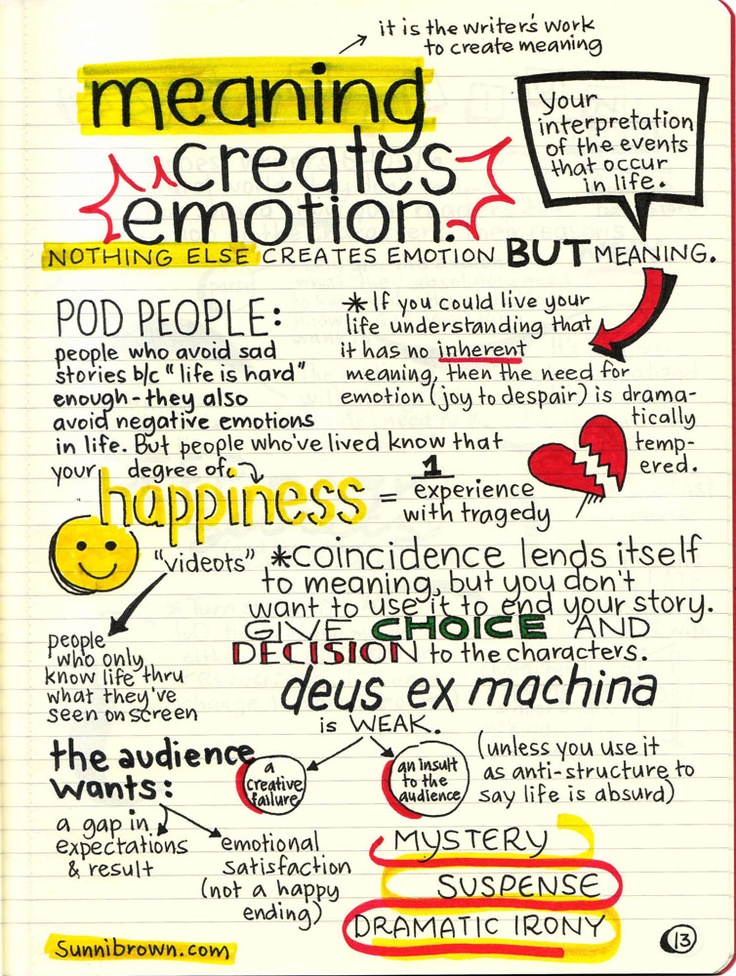 it is the writer's work
to create meaning
meaning
creates
emotion.
Your
interpretation
of the events
that occur
in life.
NOTHING ELSE CREATES EMOTION BUT MEANING.
POD PEOPLE:
people who avoid sad
stories b/c "life is hard"
enough - they also
avoid negative emotions
in life. But people who've lived know that
your degree of
happiness = 1
experience
with tragedy
* If you could live your
life understanding that
it has no inherent
meaning, then the need for
emotion (joy to despair) is drama-
tically
temp-
ered.
"videots"
people
who only
know life thru
what they've
seen on screen
* coincidence lends itself
to meaning, but you don't
want to use it to end your story.
GIVE CHOICE AND
DECISION to the characters.
deus ex machina
is WEAK.
a
creative
failure
an insult
to the
audience
(unless you use it
as anti-structure to
say life is absurd)
the audience
wants:
a gap in
expectations
& result
emotional
satisfaction
(not a happy
ending)
MYSTERY
SUSPENSE
DRAMATIC IRONY
Sunnibrown.com
13